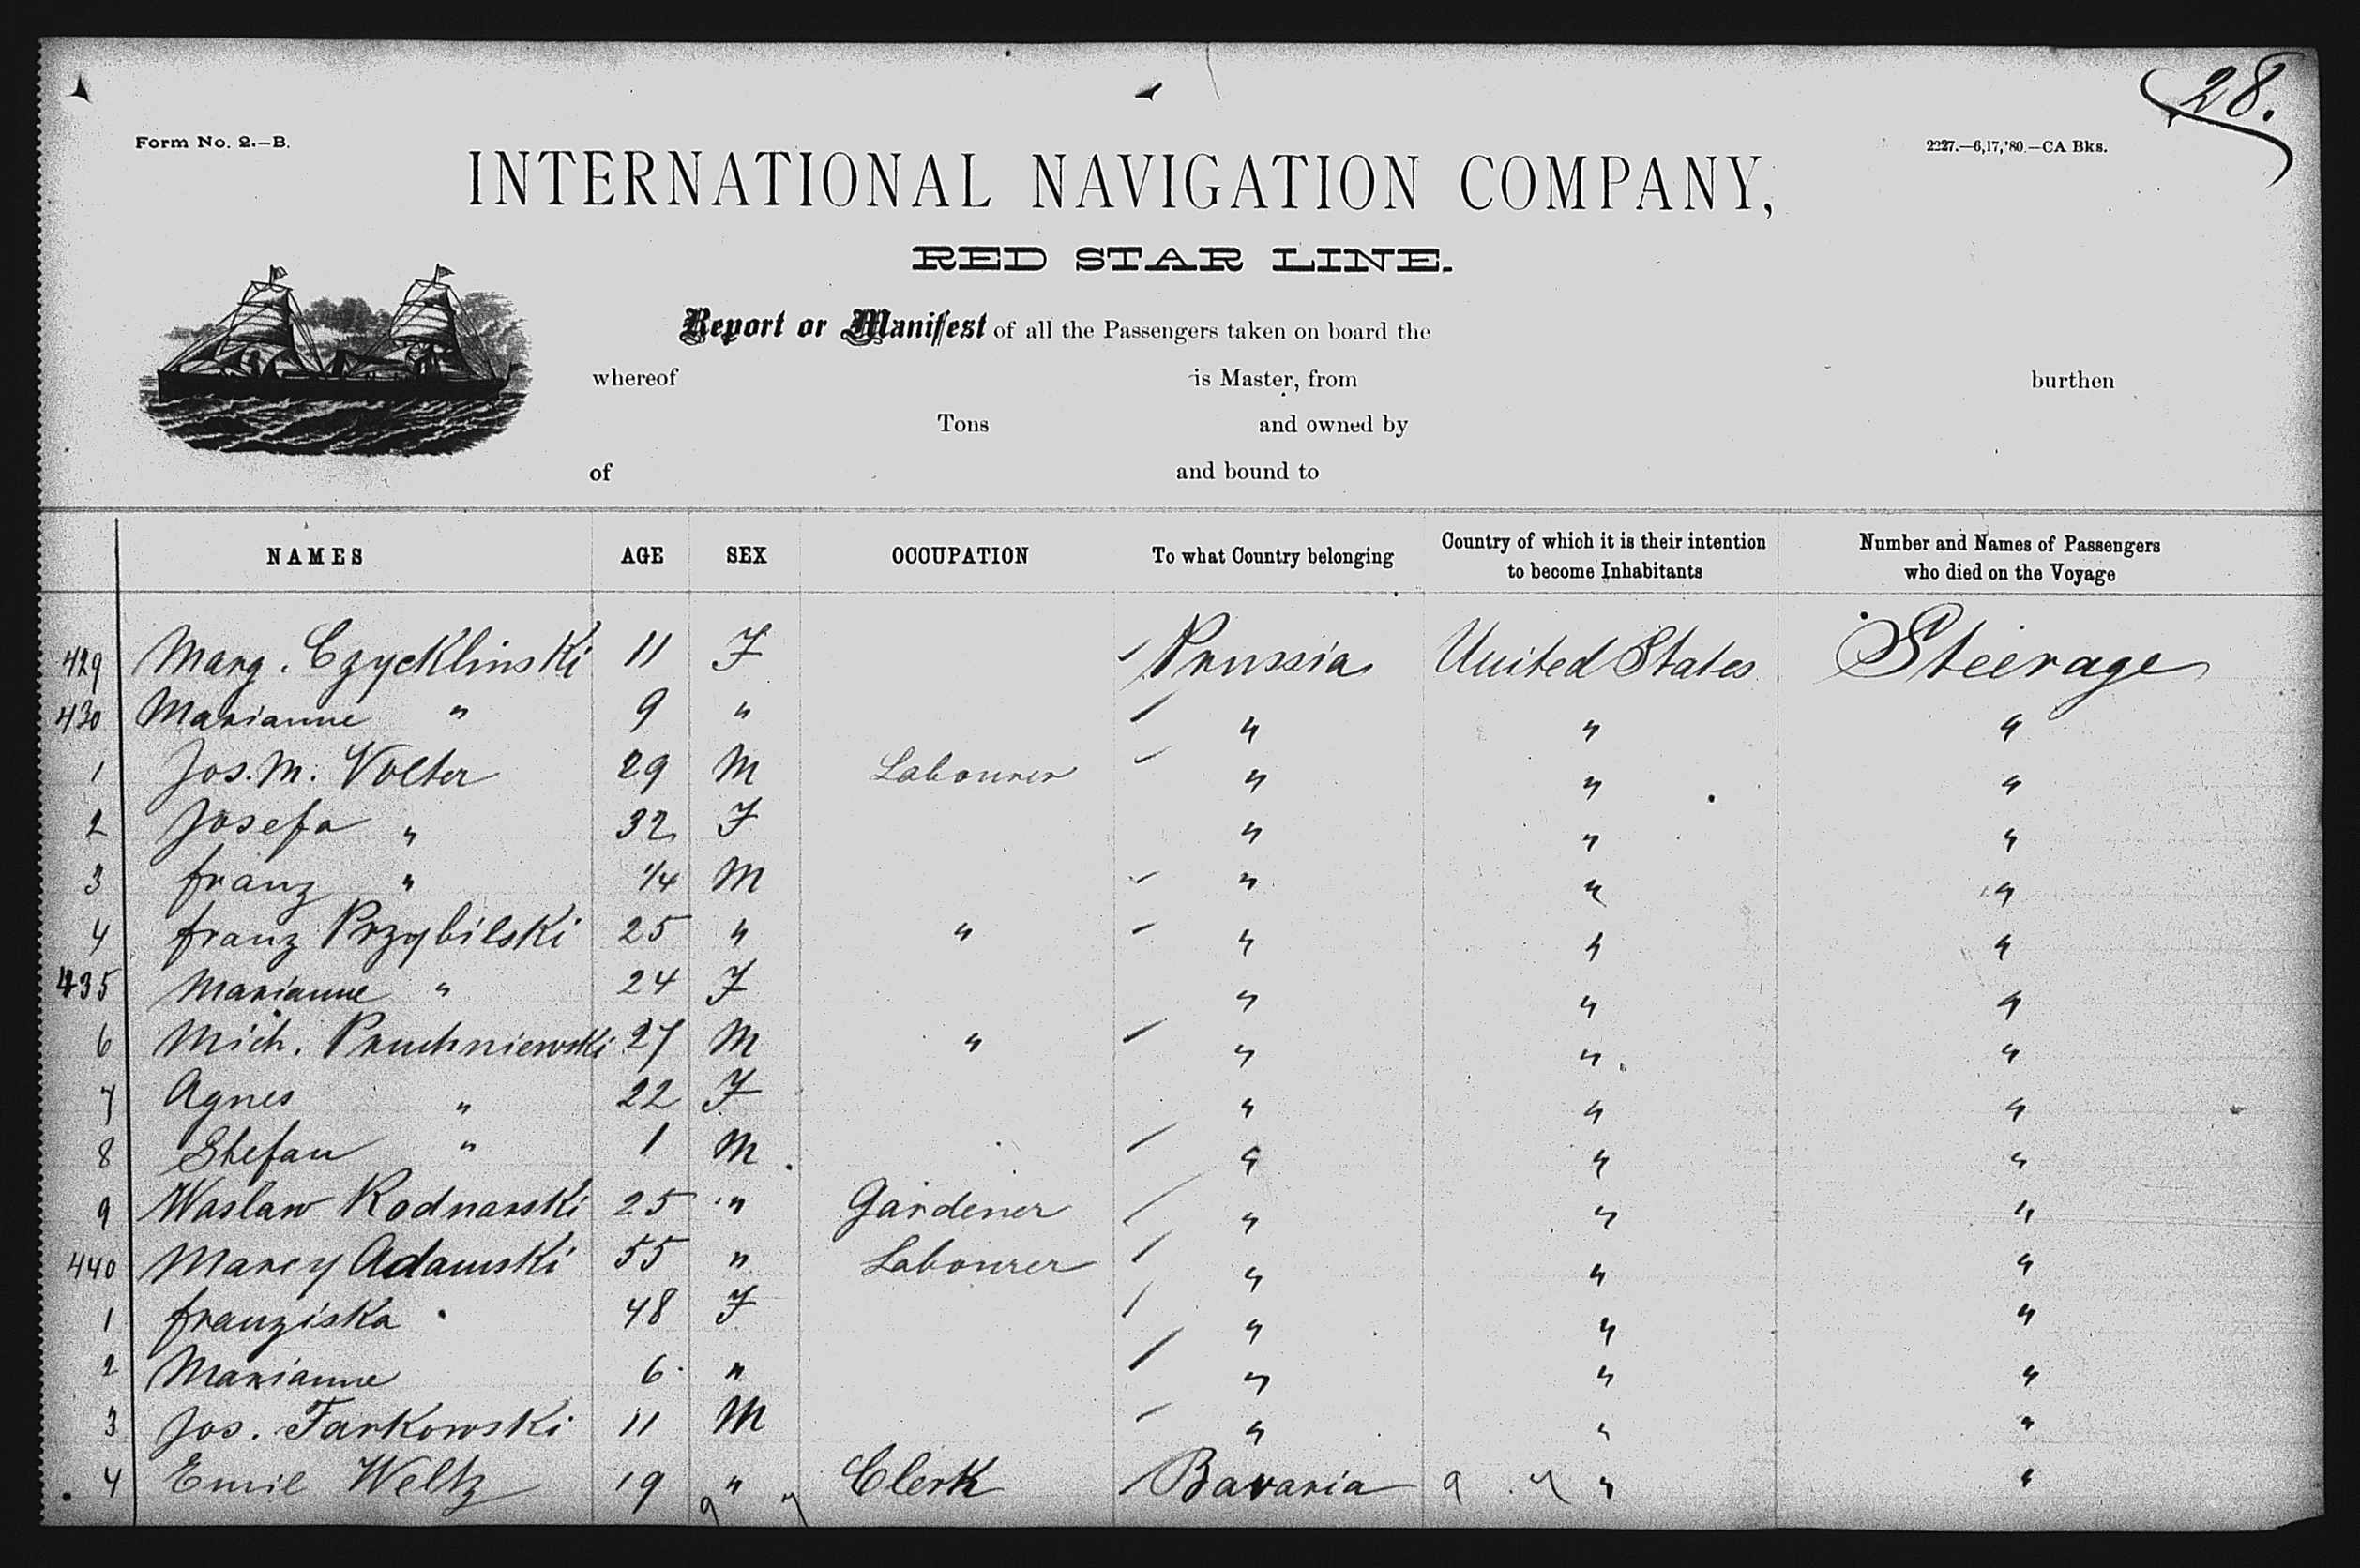 28.
Form No. 2.—B.
2227.—6,17,'80.—CA Bks.
INTERNATIONAL NAVIGATION COMPANY,
RED STAR LINE.
Report or Manifest of all the Passengers taken on board the
whereof is Master, from burthen
Tons and owned by
of and bound to
NAMES AGE SEX OCCUPATION To what Country belonging Country of which it is their intention to become Inhabitants Number and Names of Passengers who died on the Voyage
429 Marg. Czycklinski 11 F Prussia United States Steerage
430 Marianne " 9 " " " "
1 Jos. M. Volter 29 M Labourer " " "
2 Josefa " 32 F " " "
3 franz " 1/4 M " " "
4 franz Przybilski 25 " " " " "
435 Marianne " 24 F " " "
6 Mich. Pruchniewski 27 M " " " "
7 Agnes " 22 F " " "
8 Stefan " 1 M " " "
9 Waslaw Rodnarski 25 " Gardener " " "
440 Marcy Adamski 55 " Labourer " " "
1 franziska 48 F " " "
2 Marianne 6 " " " "
3 Jos. Tarkowski 11 M " " "
4 Emil Weltz 19 " Clerk Bavaria " "